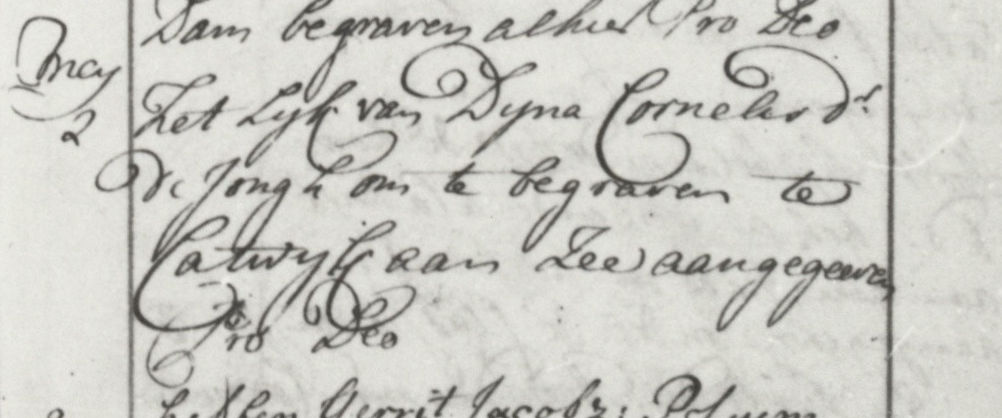 Dam begraven alhier Pro Deo
Mey
2 Het Lyk van Dyna Cornelis dr
de Jongh om te begraven te
Catwyk aan Zee aangegeven
Pro Deo
Gerrit Jacobz: